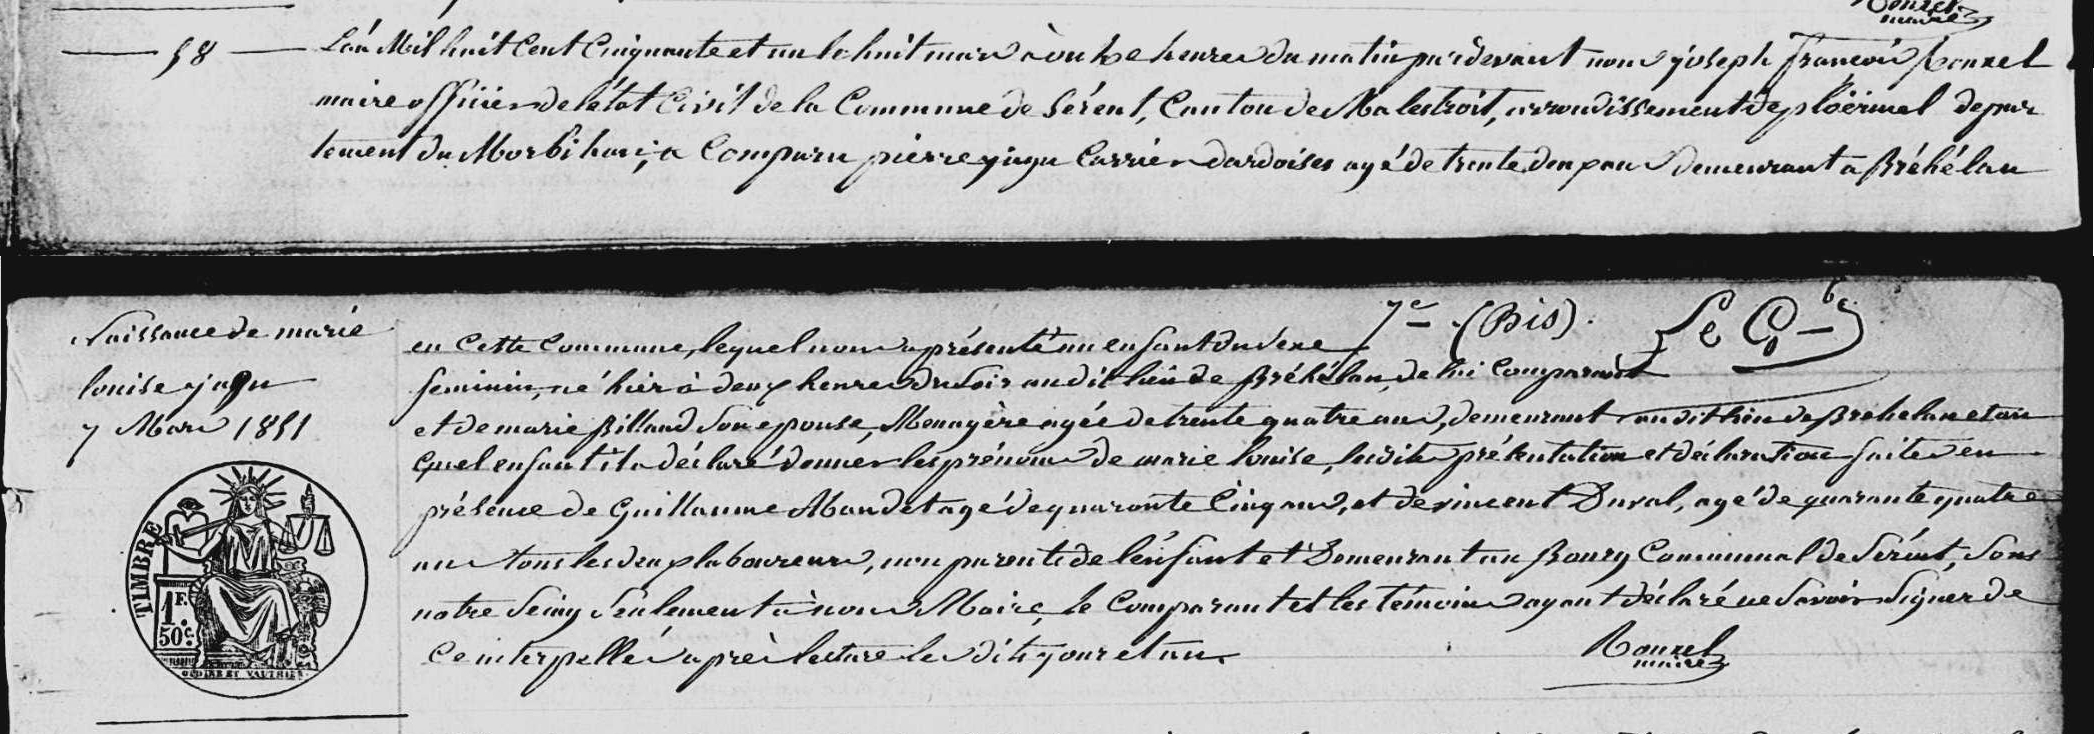 maire
58
L'an Mil huit Cent Cinquante et un le huit mars à onze heures du matin par devant nous joseph françois Ronxel
maire officier de l'état Civil de la Commune de Sérent, Canton de Malestroit, arrondissement de ploërmel depar
tement du Morbihan, a Comparu pierre jagu Carrier dardoises agé de trente deux ans demeurant a Bréhélan
7e (Bis). Le Con
Naissance de marie
louise jagu
7 Mars 1851
en Cette Commune, lequel nous a présenté un enfant du sexe
feminin, né hier à deux heures du soir au dit lieu de Bréhélan, de lui Comparant
et de marie Billaud son epouse, Menagère agée de trente quatre ans, demeurant au dit lieu de Brehelan et au
quel enfant il a déclaré donner les prénoms de marie louise, lesdites présentation et déclaration faites en
présence de Guillaume Maudet agé de quarante Cinq ans, et de vincent Duval, agé de quarante quatre
ans tous les deux laboureurs, non parents de l'enfant et Demeurant au Bourg Communal de Sérent, Sous
notre Seing Seulement à nous Maire, le Comparant et les témoins ayant déclaré ne Savoir Signer de
Ce interpellés après lecture les dits jour et an.
Ronxel
maire
TIMBRE
1F.
50c.
OUDINE ET VAUTHIER